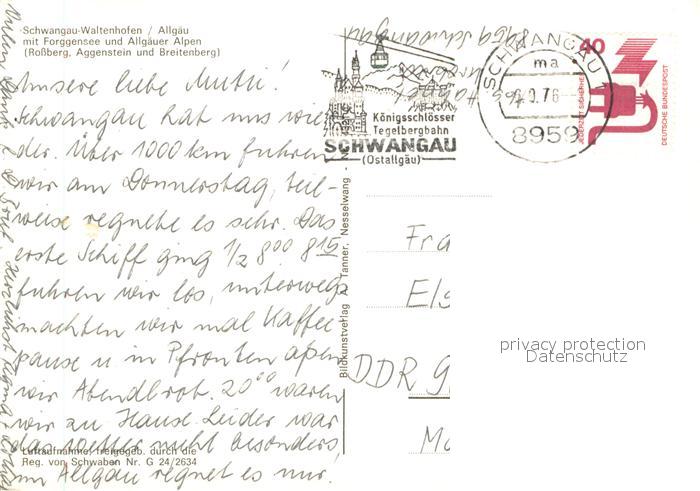 Schwangau-Waltenhofen / Allgäu
mit Forggensee und Allgäuer Alpen
(Roßberg, Aggenstein und Breitenberg)
Unsere liebe Mutti!
Schwangau hat uns wie-
der. Über 1000 km fuhren
wir am Donnerstag, teil-
weise regnete es sehr. Das
erste Schiff ging 1/2 8⁰⁰ 8¹⁵
fuhren wir los, unterwegs
machten wir mal Kaffee
pause u in Pfronten aßen
wir Abendbrot. 20⁰⁰ waren
wir zu Hause. Leider war
das Wetter nicht besonders,
im Allgäu regnet es nur.
Luftaufnahme freigegeb. durch die
Reg. von Schwaben Nr. G 24/2634
Bildkunstverlag A. Tanner, Nesselwang
8959 Schwangau
Königsschlösser
Tegelbergbahn
SCHWANGAU
(Ostallgäu)
SCHWANGAU 1
ma
9.76
8959
40
JEDERZEIT SICHERHEIT
DEUTSCHE BUNDESPOST
Fra
Els
DDR 9
privacy protection
Datenschutz